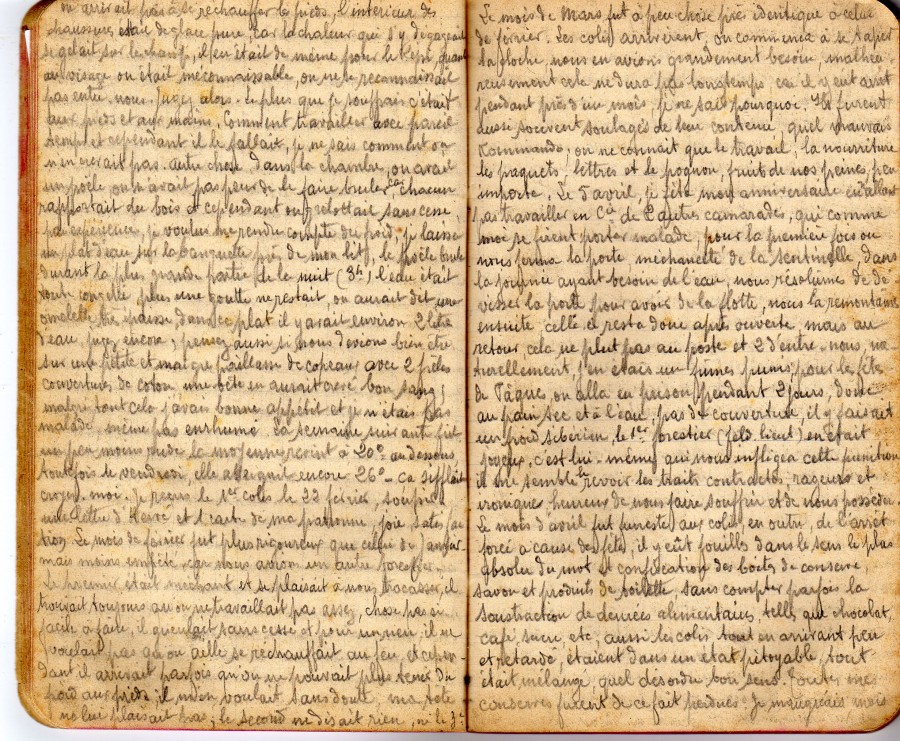 n arrivait pas à se rechauffer les pieds, l'intérieur des
chaussures était de glace pure, car la chaleur qui s'y dégageait
se gelait sur le champ, il en était de même pour le Kepi, quant
au visage on était méconnaissable, on ne se reconnaissait
pas entre nous. Jugez alors. Le plus que je souffrais c'était
aux pieds et aux mains. Comment travailler avec pareil
temps et cependant il le fallait, je ne sais comment on
n'en crevait pas. Autre chose dans la chambre, on avait
un poële, on n'avait pas peur de le faire bruler car chacun
rapportait du bois et cependant on grelottait sans cesse,
par expérience, je voulus me rendre compte du froid, je laisse
un plat d'eau sur la banquette près de mon lit, le poële brule
durant la plus grande partie de la nuit (3h) l'eau était
toute congelée plus une goutte ne restait, on aurait dit une
omelette très épaisse, dans ce plat il y avait environ 2 litre
d'eau, jugez encore, pensez aussi si nous devions bien être
sur une petite et maigre paillasse de copeaux avec 2 petites
couvertures de coton une bête en aurait crevé bon sang,
malgré tout cela j'avais bonne appétit et je n'étais pas
malade, même pas enrhumé. La semaine suivante fut
un peu moins rude la moyenne revint à 20° au dessous
toutefois le vendredi, elle atteignit encore 26° - ça sifflait
croyez-moi. Je reçus le 1er colis le 23 février, soupirs
une lettre d'Hervé et 1 carte de ma patronne, joie satisfac
tion. Le mois de février fut plus rigoureux que celui de janvier
mais moins embêté, car nous avions un autre forestier.
Le premier était méchant et se plaisait à nous tracasser, il
trouvait toujours qu'on ne travaillait pas assez, chose pas si
facile à faire, il gueulait sans cesse et pour un rien, il ne
voulait pas qu'on aille se rechauffait au feu et cepen-
dant il arrivait parfois qu'on ne pouvait plus tenir du
froid aux pieds, il m'en voulait sans doute, ma tête
ne lui plaisait pas; le second ne disait rien, ni le 3e
Le mois de Mars fut à peu chose près identique à celui
de février. Les colis arrivèrent, on commença à se taper
la cloche, nous en avions grandement besoin, malheu-
reusement cela ne dura pas longtemps car il y eut arrêt
pendant près d'un mois je ne sais pourquoi. Ils furent
aussi souvent soulagés de leur contenu, quel mauvais
Kommando, on ne connait que le travail; la nourriture
les paquets, lettres et le pognon, fruits de nos peines, peu
importe. Le 5 avril, je fête mon anniversaire en n'allant
pas travailler en Cie de 2 autres camarades, qui comme
moi se firent porter malade, pour la première fois on
nous ferma la porte, méchanceté de la sentinelle, dans
la journée ayant besoin de l'eau, nous résolumes de dé
visser la porte pour avoir de la flotte, nous la remontames
ensuite, celle-ci resta donc après ouverte, mais au
retour cela ne plut pas au poste et 2 d'entre-nous, na
turellement, j'en étais un fumes punis, pour les fêtes
de Pâques, on alla en prison pendant 2 jours, donc
au pain sec et à l'eau, pas de couverture, il y faisait
un froid sibérien, le 1er forestier (feld. lieut) en était
joyeux, c'est lui-même qui nous infligea cette punition
il me semble le revoir les traits contractés, rageurs et
ironiques, heureux de nous faire souffrir et de nous posséder.
Le mois d'avril fut funeste aux colis, en outre, de l'arrêt
forcé à cause des fêtes, il y eût fouilles dans le sens le plus
absolu du mot et confiscation des boîtes de conserve,
savon et produits de toilette, sans compter parfois la
soustraction de denrées alimentaires, telles que chocolat,
café, sucre, etc, aussi les colis tout en arrivant peu
et retardé, étaient dans un état pitoyable, tout
était mélangé, quel désordre bon sens. Toutes mes
conserves furent de ce fait perdues. Je maugréais mais